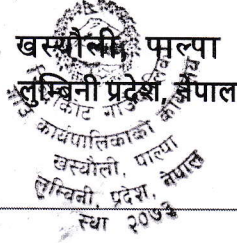 खस्यौली, पाल्पा
लुम्बिनी प्रदेश, नेपाल
कार्यपालिकाको
खस्यौली, पाल्पा
लुम्बिनी, प्रदेश, नेपाल
स्था २०७३